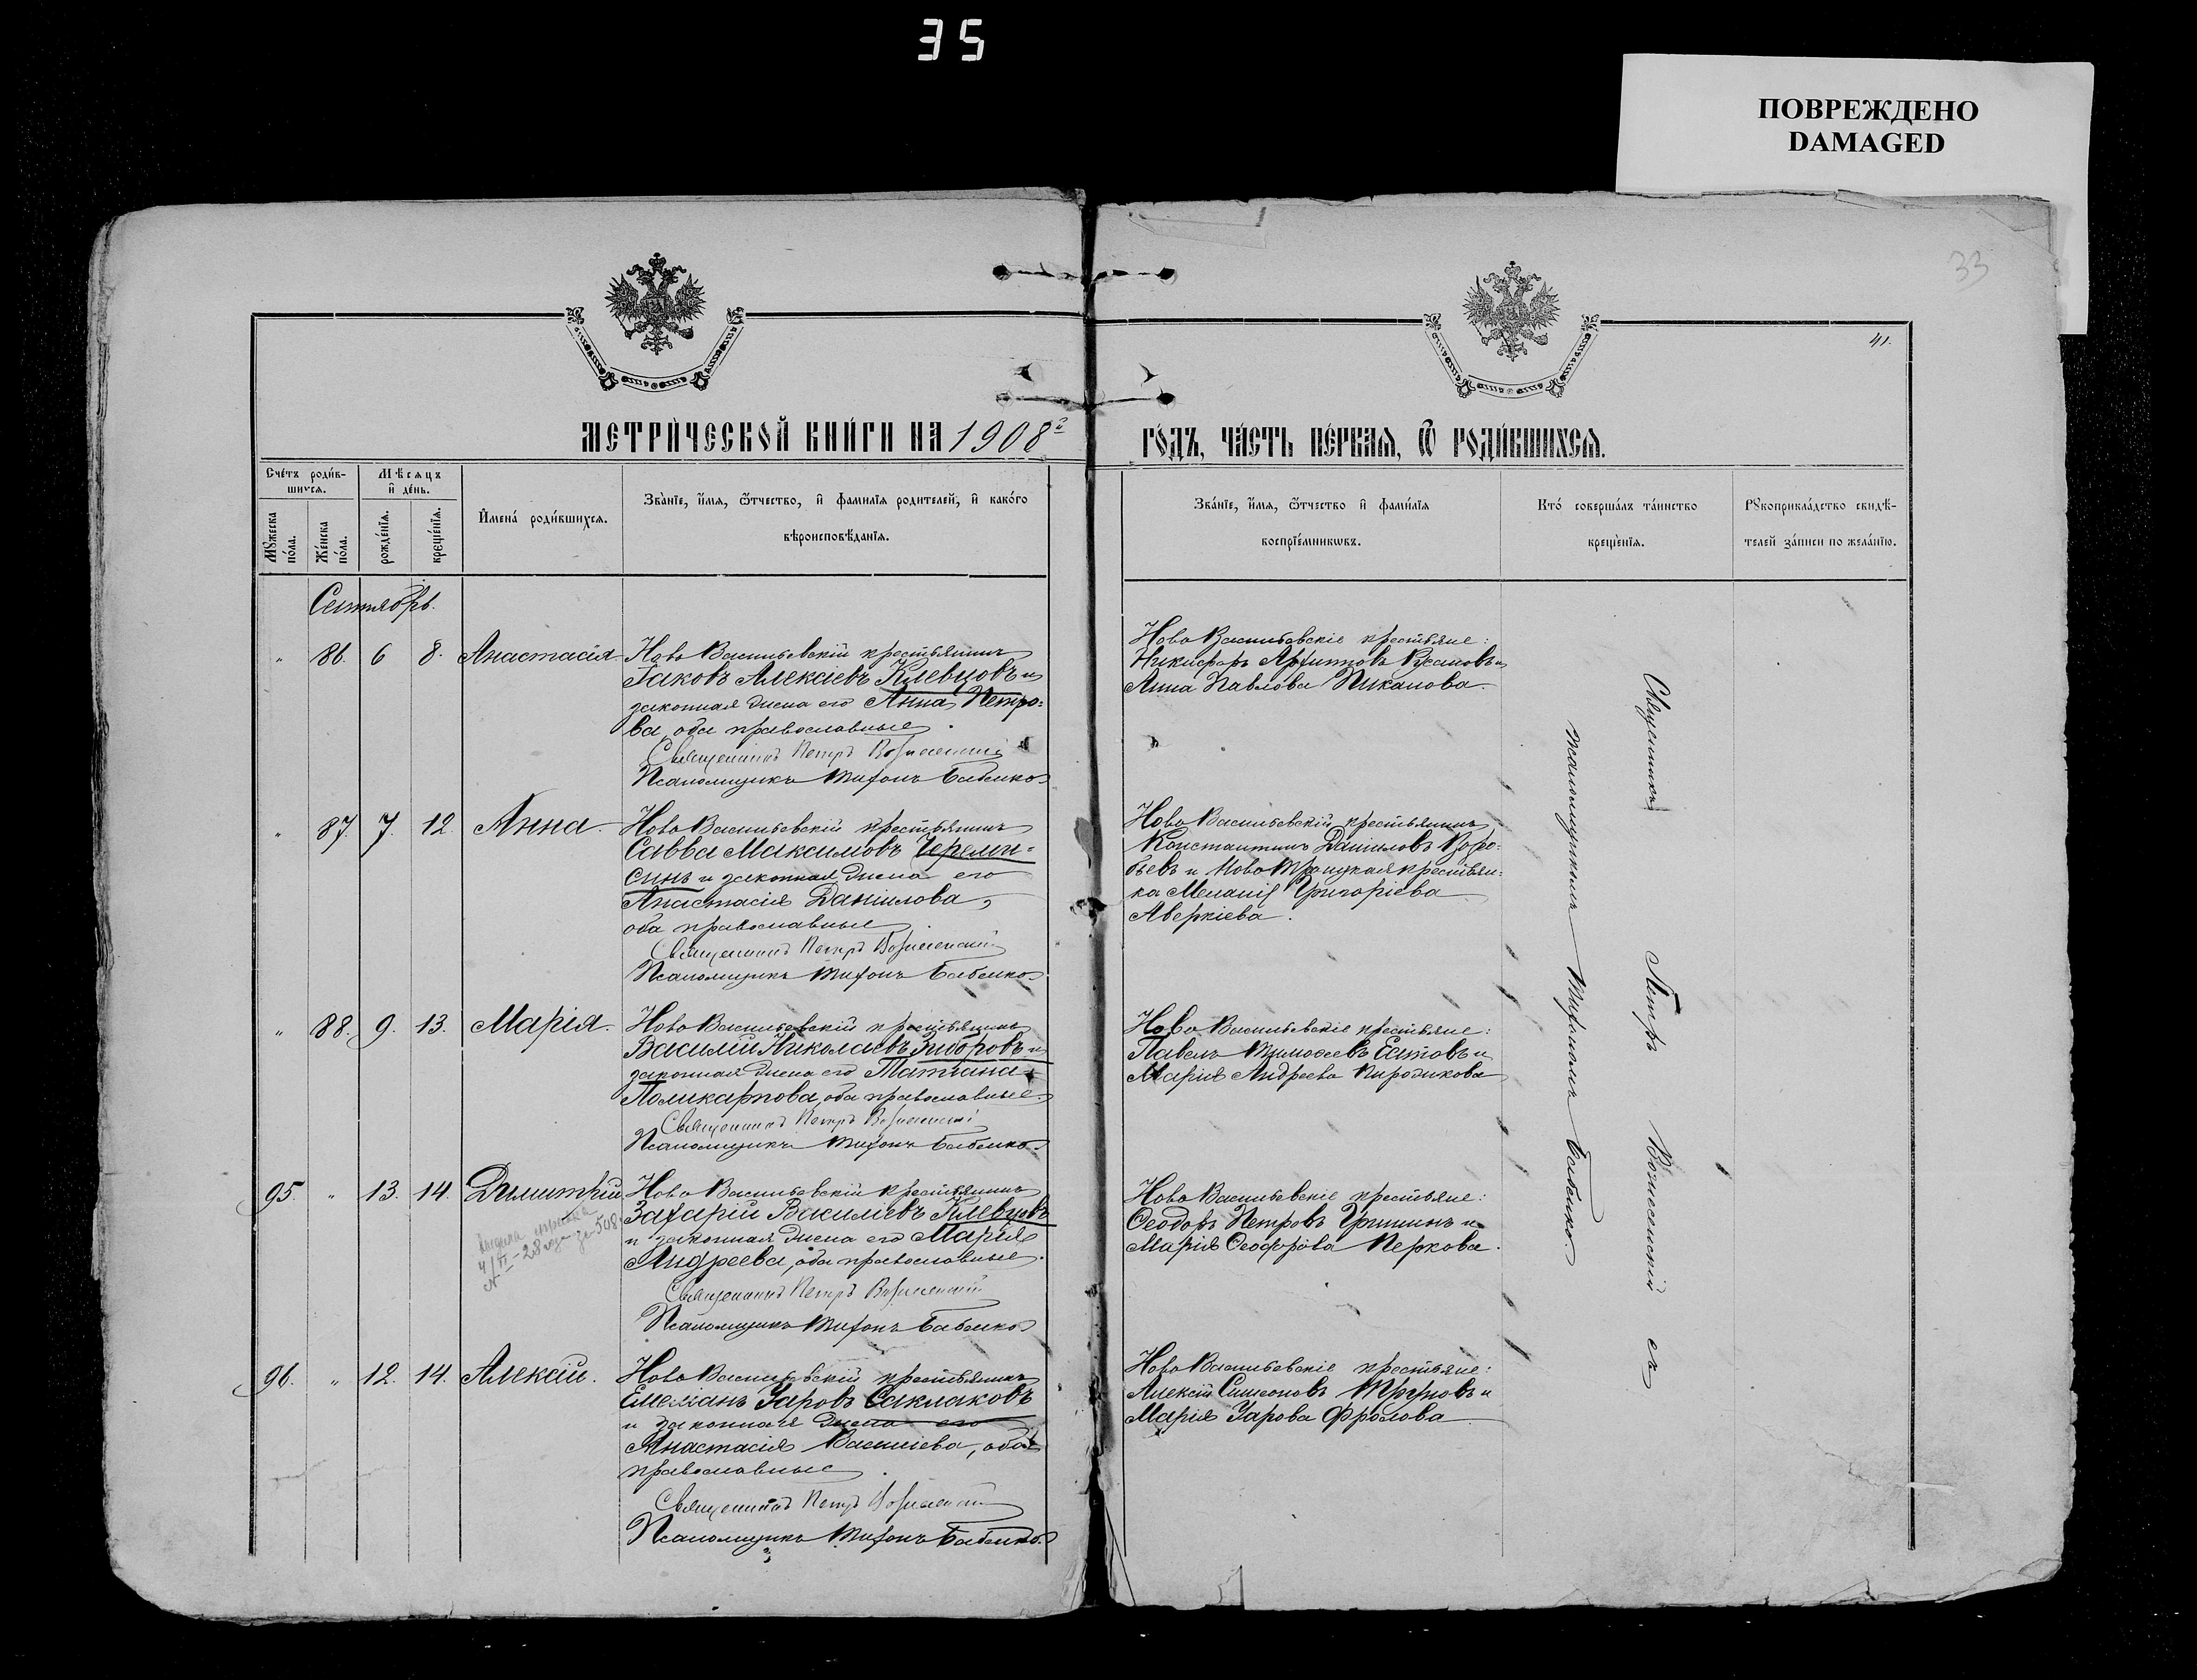 35
ПОВРЕЖДЕНО
DAMAGED
33
41.
МЕТРИ́ЧЕСКОЙ КНИ́ГИ НА 1908й
ГО́ДЪ, ЧА́СТЬ ПЕ́РВАЯ, Ѿ РОДИ́ВШИХСЯ.
Сче́тъ роди́в-
шихся.
Мѣсяцъ
и҆ де́нь.
Мꙋ́жеска по́ла.
Же́нска по́ла.
рожде́нїя.
креще́нїя.
И҆мена̀ роди́вшихся.
Зва́нїе, и҆́мя, ѻ҆́тчество, и҆ фами́лїя роди́телей, и҆ како́го
вѣроисповѣ́данїя.
Зва́нїе, и҆́мя, ѻ҆́тчество и҆ фами́лїя
воспрїе́мникѡвъ.
Кто́ соверша́лъ та́инство
креще́нїя.
Рꙋкоприкла́дство свидѣ́-
телей за́писи по жела́нїю.
Сентябрь.
" 86. 6 8. Анастасія
Ново Васильевскій крестьянинъ
Іаковъ Алексіевъ Клевцовъ и
законная жена его Анна Петро-
ва, оба православные.
Священникъ Петръ Вознесенскій
Псаломщикъ Тихонъ Бабенко
Ново Васильевскіе крестьяне:
Никифоръ Архиповъ Русановъ и
Анна Павлова Пиканова.
" 87. 7. 12 Анна.
Ново Васильевскій крестьянинъ
Савва Максимовъ Череми-
синъ и законная жена его
Анастасія Даніилова,
оба православные.
Священникъ Петръ Вознесенскій
Псаломщикъ Тихонъ Бабенко
Ново Васильевскій крестьянинъ
Константинъ Даниловъ Воро-
бьевъ и Ново Троицкая крестьян-
ка Меланія Григоріева
Аверкіева.
" 88. 9. 13. Марія.
Ново Васильевскій крестьянинъ
Василій Николаевъ Зиборовъ и
законная жена его Татіана
Поликарпова, оба православные.
Священникъ Петръ Вознесенскій
Псаломщикъ Тихонъ Бабенко
Ново Васильевскіе крестьяне:
Павелъ Тимоѳеевъ Еставъ и
Марія Андреева
95. " 13. 14. Димитрій
Ново Васильевскій крестьянинъ
Захарій Василіевъ Клевцовъ
и законная жена его Марія
Андреева, оба православные.
Священникъ Петръ Вознесенскій
Псаломщикъ Тихонъ Бабенко
Ново Васильевскіе крестьяне:
Ѳеодоръ Петровъ Гришинъ и
Марія Ѳеодорова Перкова.
96. " 12. 14. Алексій.
Ново Васильевскій крестьянинъ
Емеліанъ Уаровъ Саклаковъ
и законная жена его
Анастасія Василіева, оба
православные.
Священникъ Петръ Вознесенскій
Псаломщикъ Тихонъ Бабенко.
Ново Васильевскіе крестьяне:
Алексій Симеоновъ и
Марія Уарова Фролова
Священникъ Петръ Вознесенскій съ
псаломщикомъ Тихономъ Бабенко.